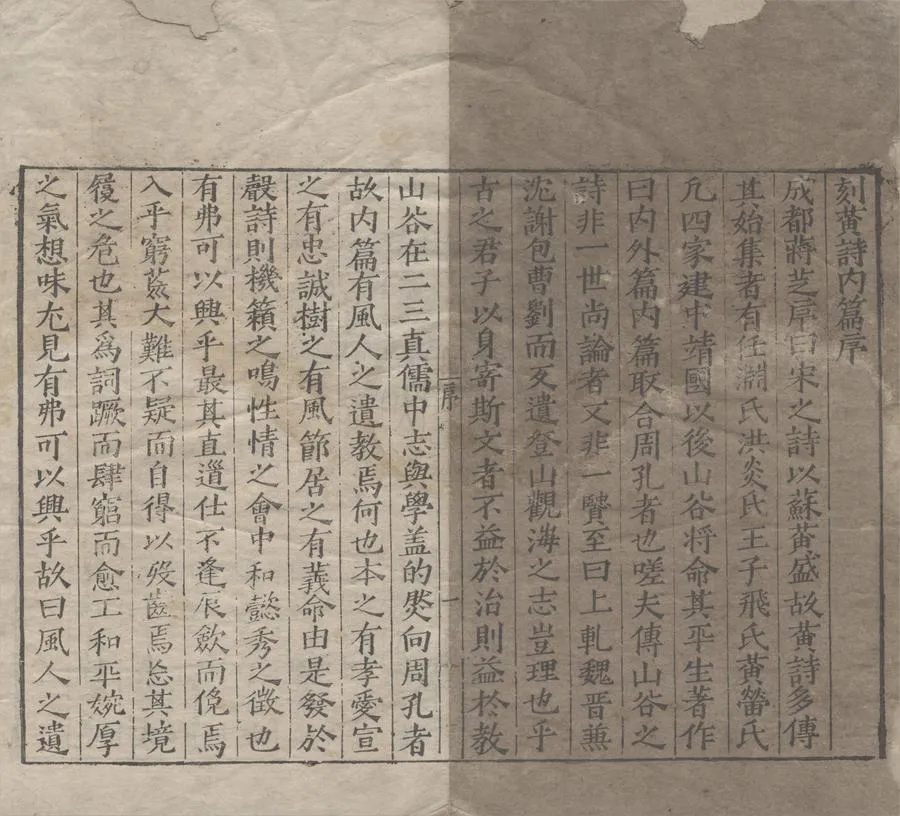 刻黃詩内篇序
成都蔣芝序曰宋之詩以蘇黃盛故黃詩多傳
其始集者有任淵氏洪炎氏王子飛氏黃䇦氏
凢四家建中靖國以後山谷将命其平生著作
曰内外篇内篇取合周孔者也嗟夫傳山谷之
詩非一世尚論者又非一賢至曰上軋魏晋兼
沱謝包曹劉而又遺登山觀海之志豈理也乎
古之君子以身寄斯文者不益於治則益於教
序
一
山谷在二三真儒中志與學盖的然向周孔者
故内篇有風人之遺教焉何也本之有孝愛宣
之有忠誠樹之有風節居之有義命由是發於
聲詩則機籟之鳴性情之會中和懿秀之徴也
有弗可以興乎最其直道仕不逢辰歛而俛焉
入乎窮荒大難不疑而自得以殁齒焉忘其境
履之危也其為詞蹶而肆窮而愈工和平婉厚
之氣想味尢見有弗可以興乎故曰風人之遺